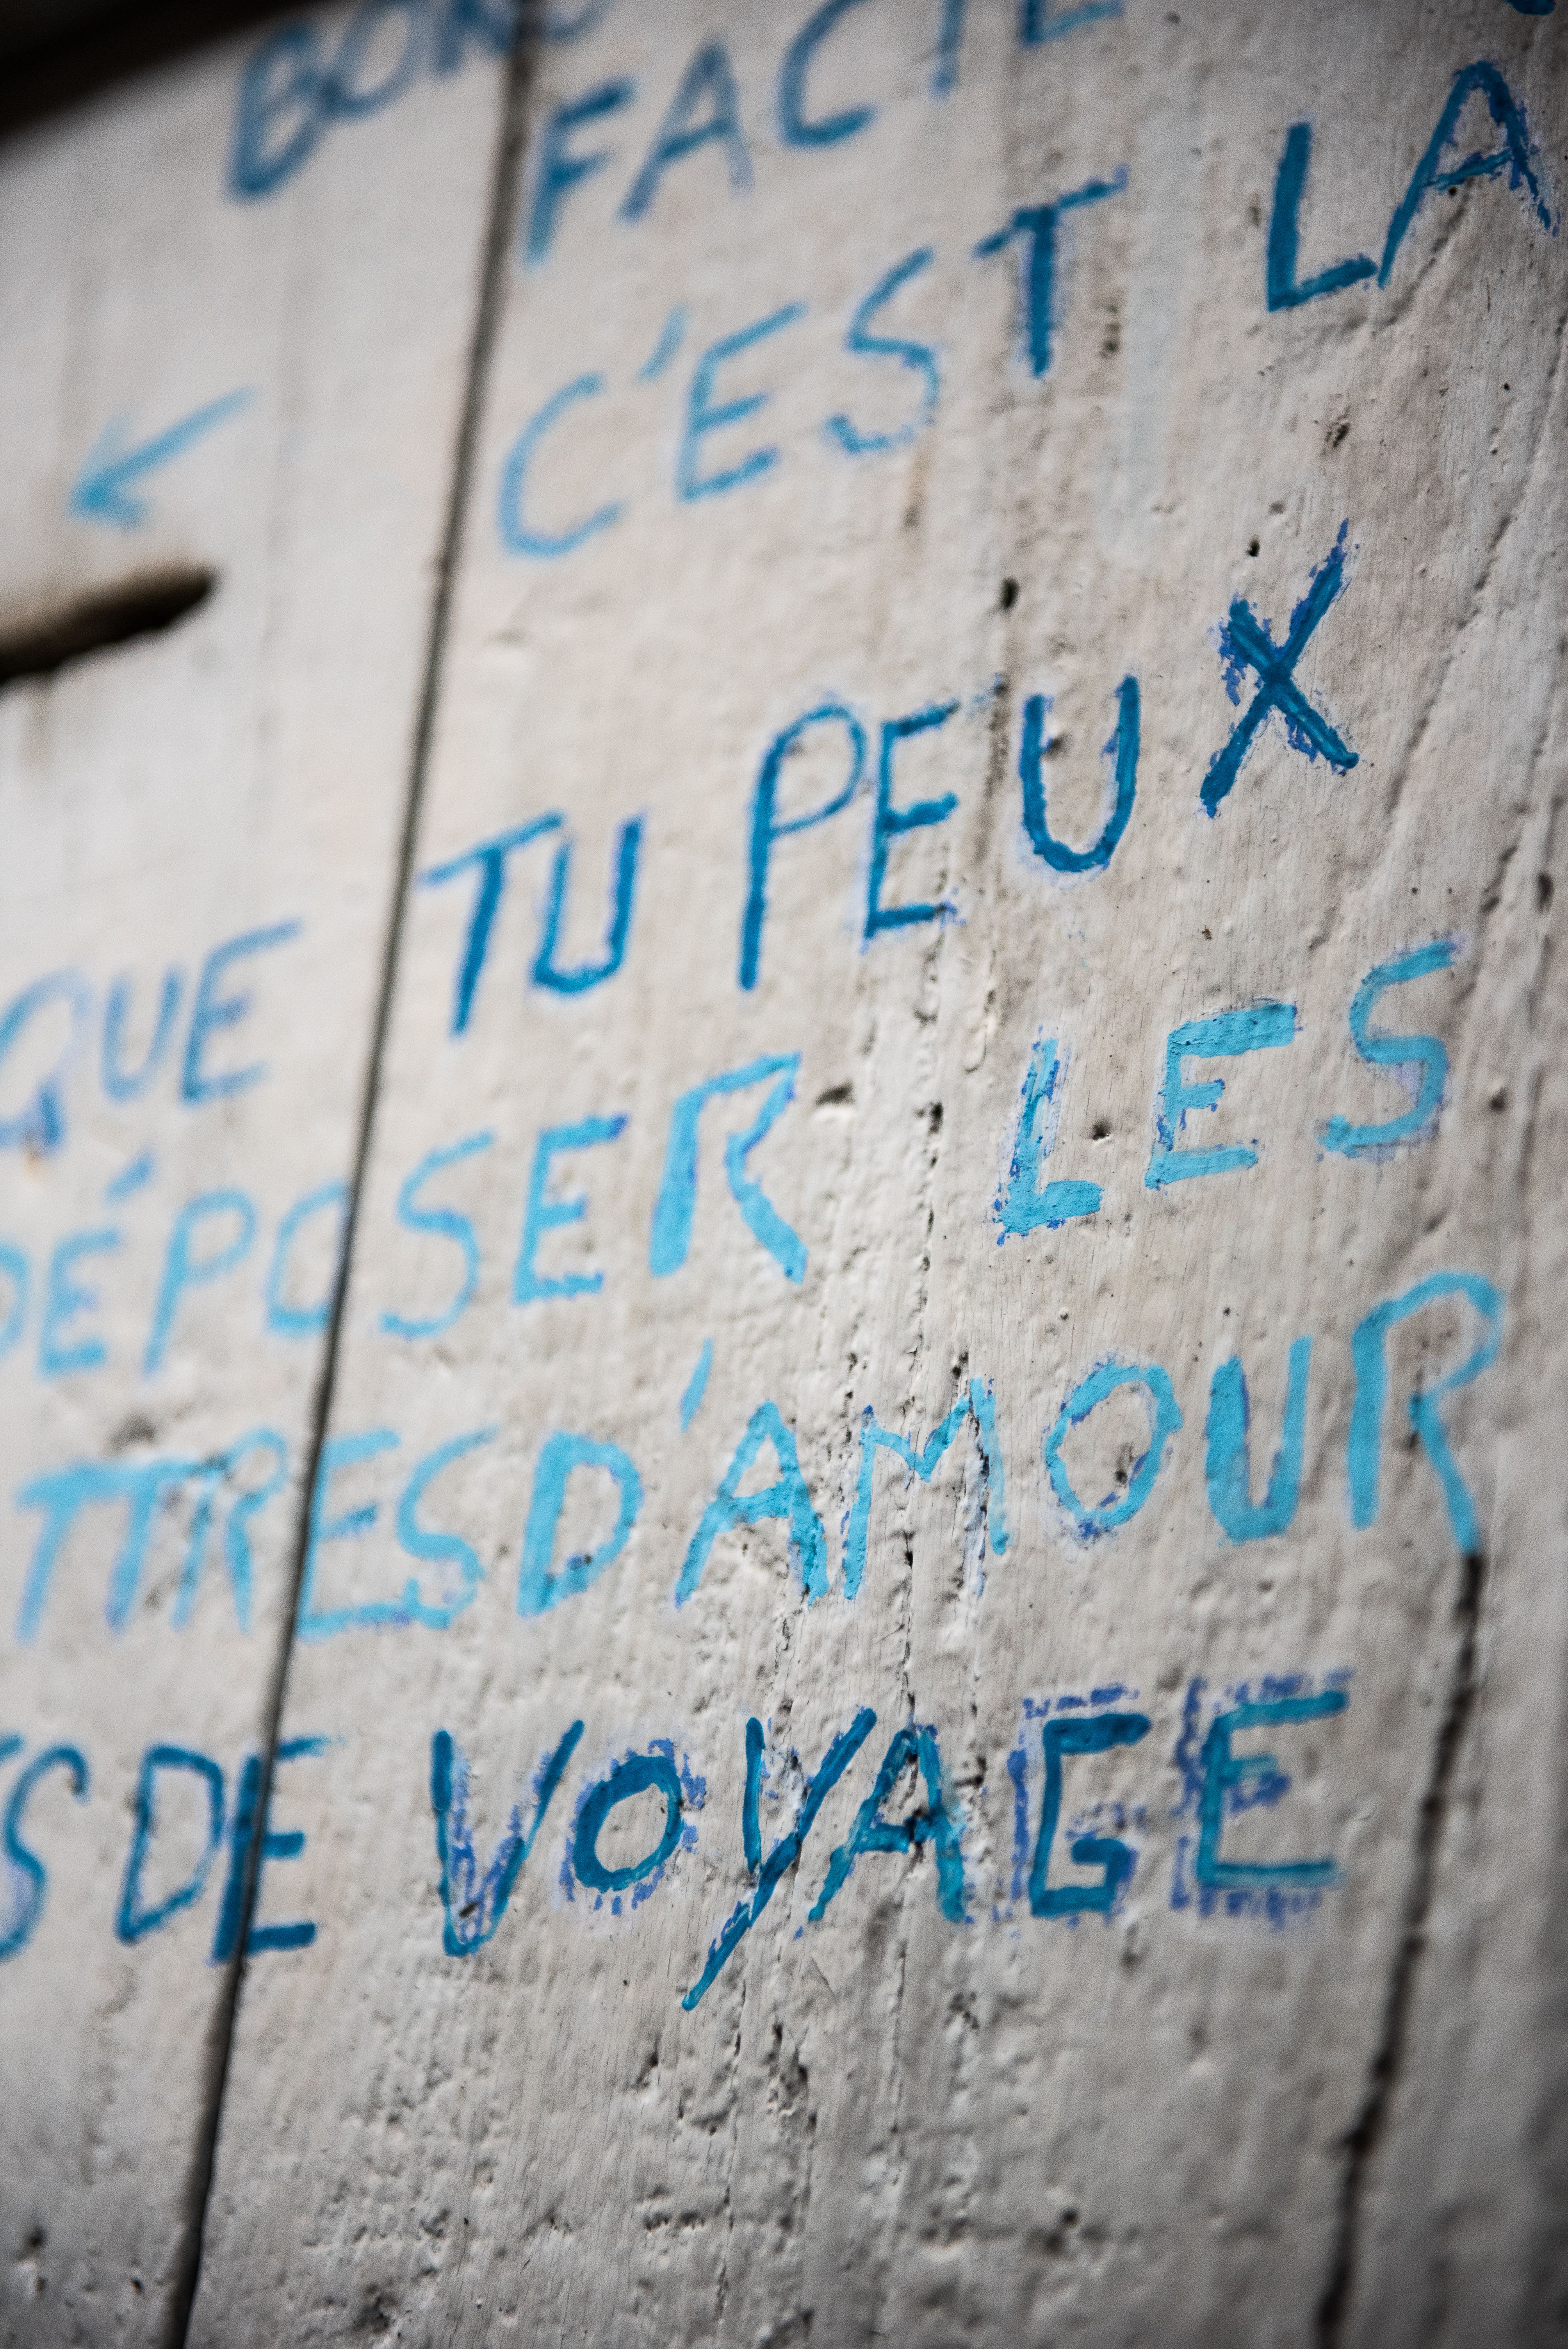 C'EST LA
QUE TU PEUX
DÉPOSER LES
TTRES D'AMOUR
S DE VOYAGE